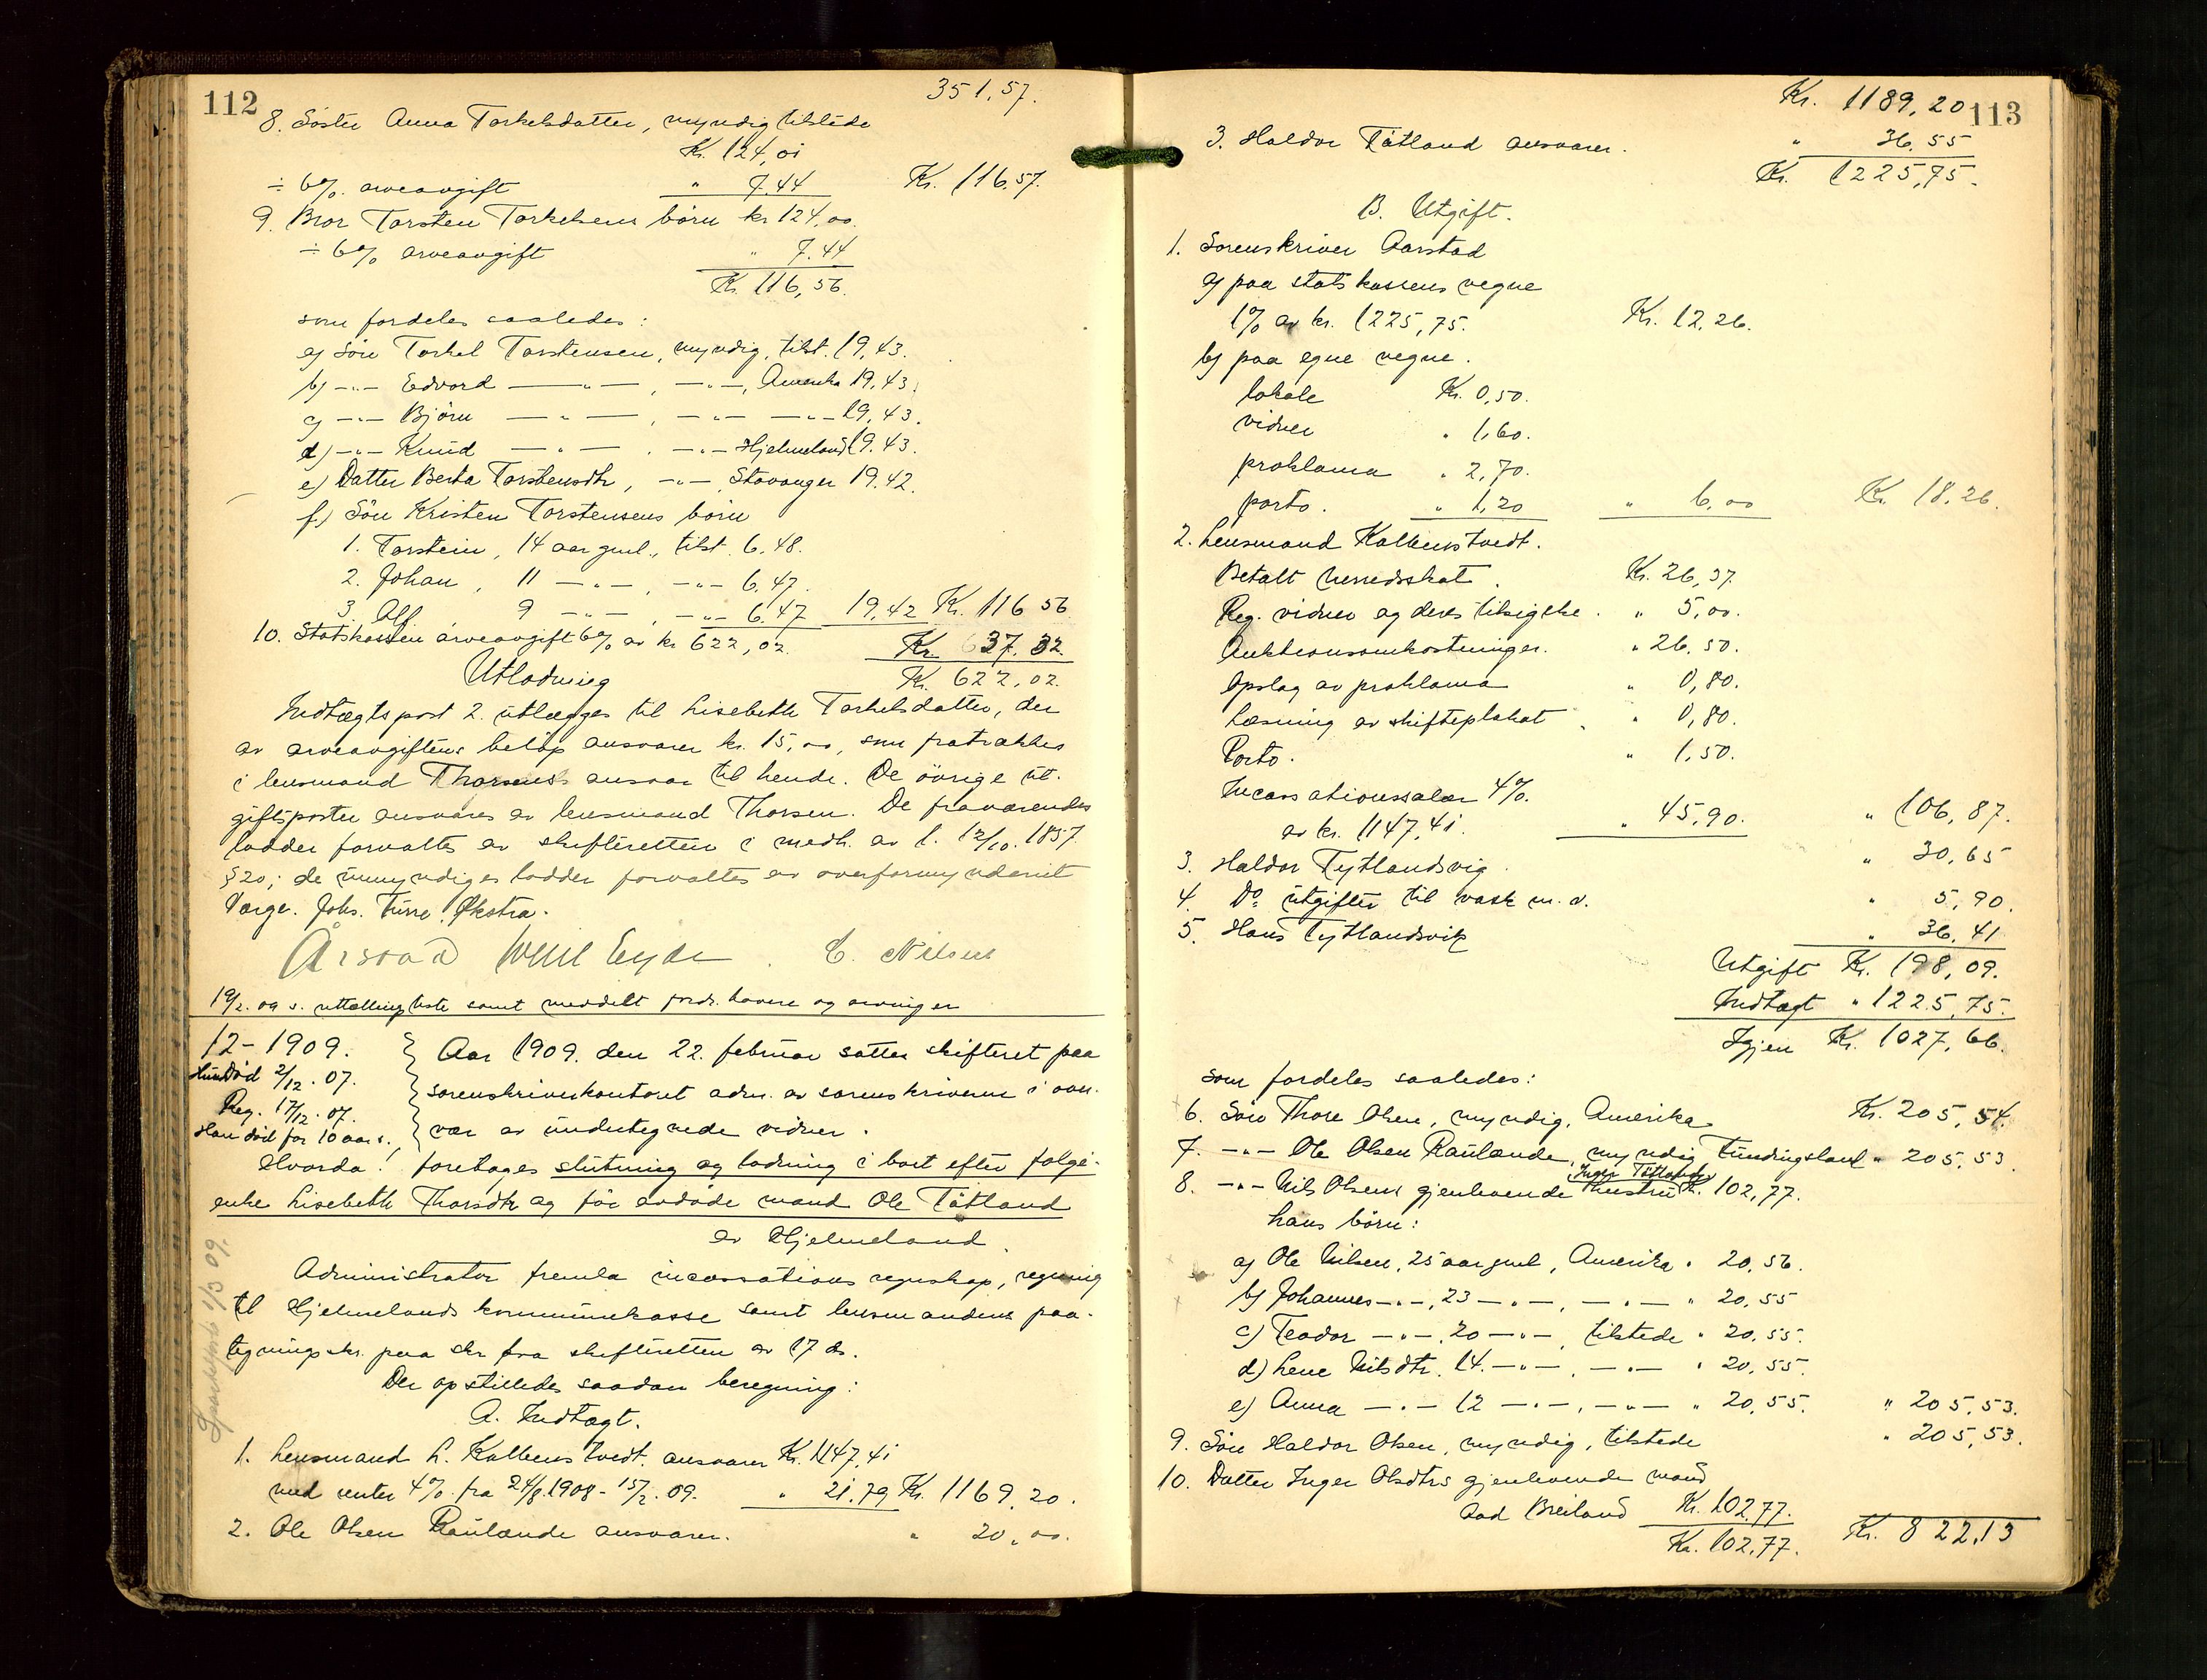 112
351,57.
8. Søster Anna Torkelsdatter, myndig tilstede
Kr. 124,01
÷ 6% arveavgift " 7.44 Kr. 116.57.
9. Bror Torsten Torkelsens børn kr 124,00.
÷ 6% arveavgift " 7.44
Kr. 116,56.
som fordeles saaledes:
a) Søn Torkel Torstensen, myndig, tilst. 19,43.
b) -"- Edvard —"—, -"-, Amerika 19,43.
c) -"- Bjørn —"—, -"- -"- 19,43.
d) -"- Knud —"—, -"- Hjelmeland 19.43.
e) Datter Berta Torstensdtr, -"-, Stavanger 19.42.
f.) Søn Kristen Torstensens børn
1. Torstein, 14 aar gml., tilst. 6,48.
2. Johan, 11 -"-, -"- 6,47.
3. Alf 9 -"-, -"- 6,47 19,42 Kr. 116 56
10. Statskassen arveavgift 6% av kr 622,02. Kr 37.32.
Utlodning Kr. 622,02.
Indtægtspost 2. utlægges til Lisebeth Torkelsdatter, der
av arveavgiftens beløp ansvarer kr. 15,00, som fratrækkes
i lensmand Thorsens ansvar til hende. De øvrige ut-
giftsposter ansvares av lensmand Thorsen. De fraværendes
lodder forvaltes av skifteretten i medh. av l. 12/10. 1857
§20; de umyndiges lodder forvaltes av overformynderiet
Værge. Johs. Økstra.
C. Nilsen
19/2. 09 s. uttællingsliste samt meddelt fordr.havere og arvinger
12-1909.
Hun död 2/12. 07.
Reg. 17/12. 07.
Han död for 10 aar s.
Aar 1909. den 22. februar sattes skifteret paa
sorenskriverkontoret adm. av sorenskriveren i over-
vær av undertegnede vidner.
Hvorda! foretages slutning og lodning i boet efter følge-
enke Lisebeth Thorsdtr og før avdøde mand Ole Tøtland
av Hjelmeland.
Administrator fremla incassations regnskap, regning
til Hjelmelands kommunekasse samt lensmandens paa-
tegningskr. paa skr fra skifteretten av 17 ds.
Der opstilledes saadan beregning:
A. Indtægt.
1. Lensmand L. Kolbenstvedt. ansvarer Kr. 1147,41
med renter 4% fra 24/8 1908 - 15/2. 09. " 21.79 Kr. 1169,20.
2. Ole Olsen Raulænde ansvarer. " 20,00.
113
Kr. 1189,20
3. Haldor Tøtland ansvarer. " 36.55
Kr. 1225,75.
B. Utgift.
1. Sorenskriver Aarstad
a) paa statskassens vegne
1% av kr. 1225,75. Kr. 12.26.
b) paa egne vegne.
lokale Kr. 0,50.
vidner " 1,60.
proklama " 2,70.
porto. " 1,20 " 6,00 Kr. 18.26.
2. Lensmand Kolbenstvedt.
Betalt herredsskat. Kr. 26,37
Reg. vidner og deres tilsigelse. " 5,00.
Auktionsomkostninger. " 26.50.
Opslag av proklama " 0,80.
Læsning av skifteplakat. " 0,80.
Porto. " 1,50.
Incassationssalær 4%.
av kr. 1147,41. " 45,90. " 106,87.
3. Haldor Tytlandsvig. " 30,65
4. Do. utgifter til vask m.v. " 5,90.
5. Hans Tytlandsvik " 36.41
Utgift Kr. 198,09.
Indtægt " 1225,75.
Igjen Kr. 1027,66.
som fordeles saaledes:
6. Søn Thore Olsen, myndig, Amerika Kr. 205,54.
7. -"- Ole Olsen Raulænde, myndig " 205,53.
Inger Tøtlands
8. -"- Nils Olsens gjenlevende hustru K. 102,77.
hans børn:
a) Ole Nilsen, 25 aar gml, Amerika " 20,56.
b) Johannes -"-, 23 -"-, -"- " 20,55
c) Teodor -"-, 20 -"-, tilstede " 20,55.
d) Lene Nilsdtr. 14. -"-, -"- " 20,55.
e) Anna -"- 12 -"-, -"- " 20,55. " 205,53.
9. Søn Haldor Olsen, myndig, tilstede " 205,53.
10. Datter Inger Olsdtrs gjenlevende mand
Aad Breiland Kr. 102,77.
Kr. 102,77. Kr. 822,13